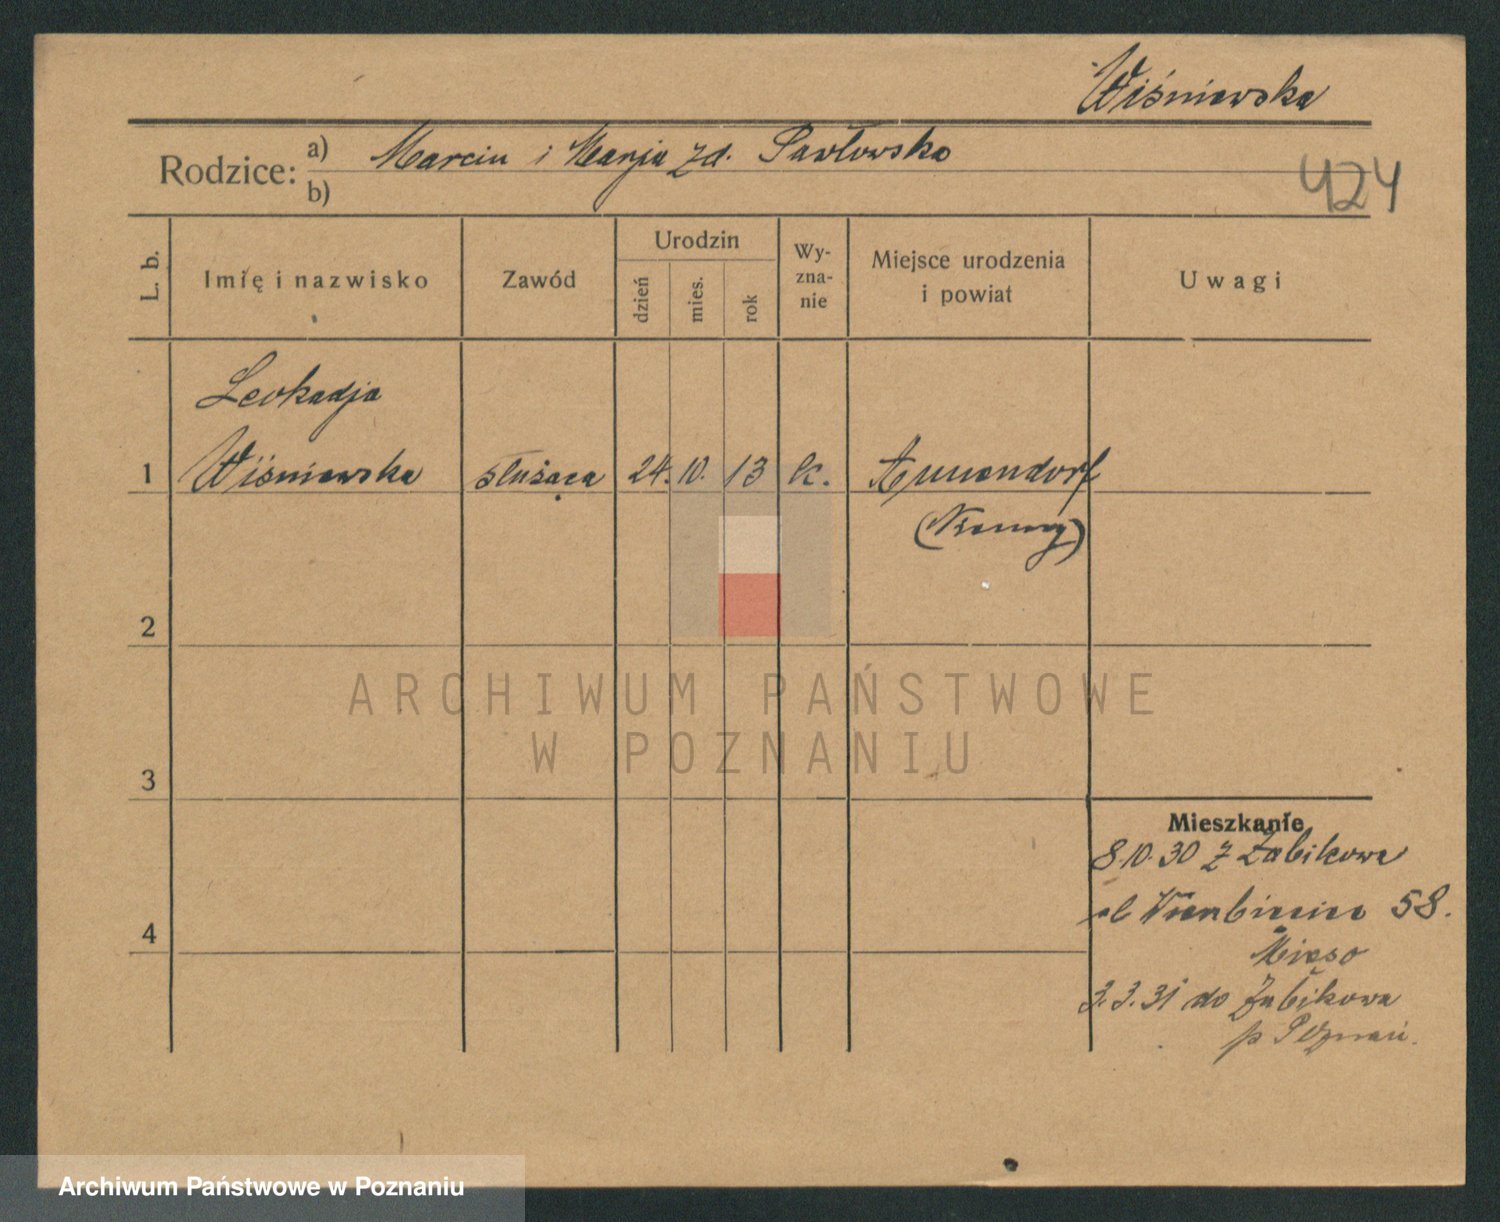 Wiśniewska
Rodzice: a) Marcin i Marja zd. Pawłowska
b)
424
L. b.
Imię i nazwisko
Zawód
Urodzin
dzień
mies.
rok
Wy-
zna-
nie
Miejsce urodzenia
i powiat
Uwagi
Leokadja
1 Wiśniewska służąca 24. 10. 13 k. Ammendorf
(Niemcy)
2
3
4
Mieszkanie
8.10.30 z Żabikowa
58.
3.3.31 do Żabikowa
p Poznań.
ARCHIWUM PAŃSTWOWE
W POZNANIU
Archiwum Państwowe w Poznaniu